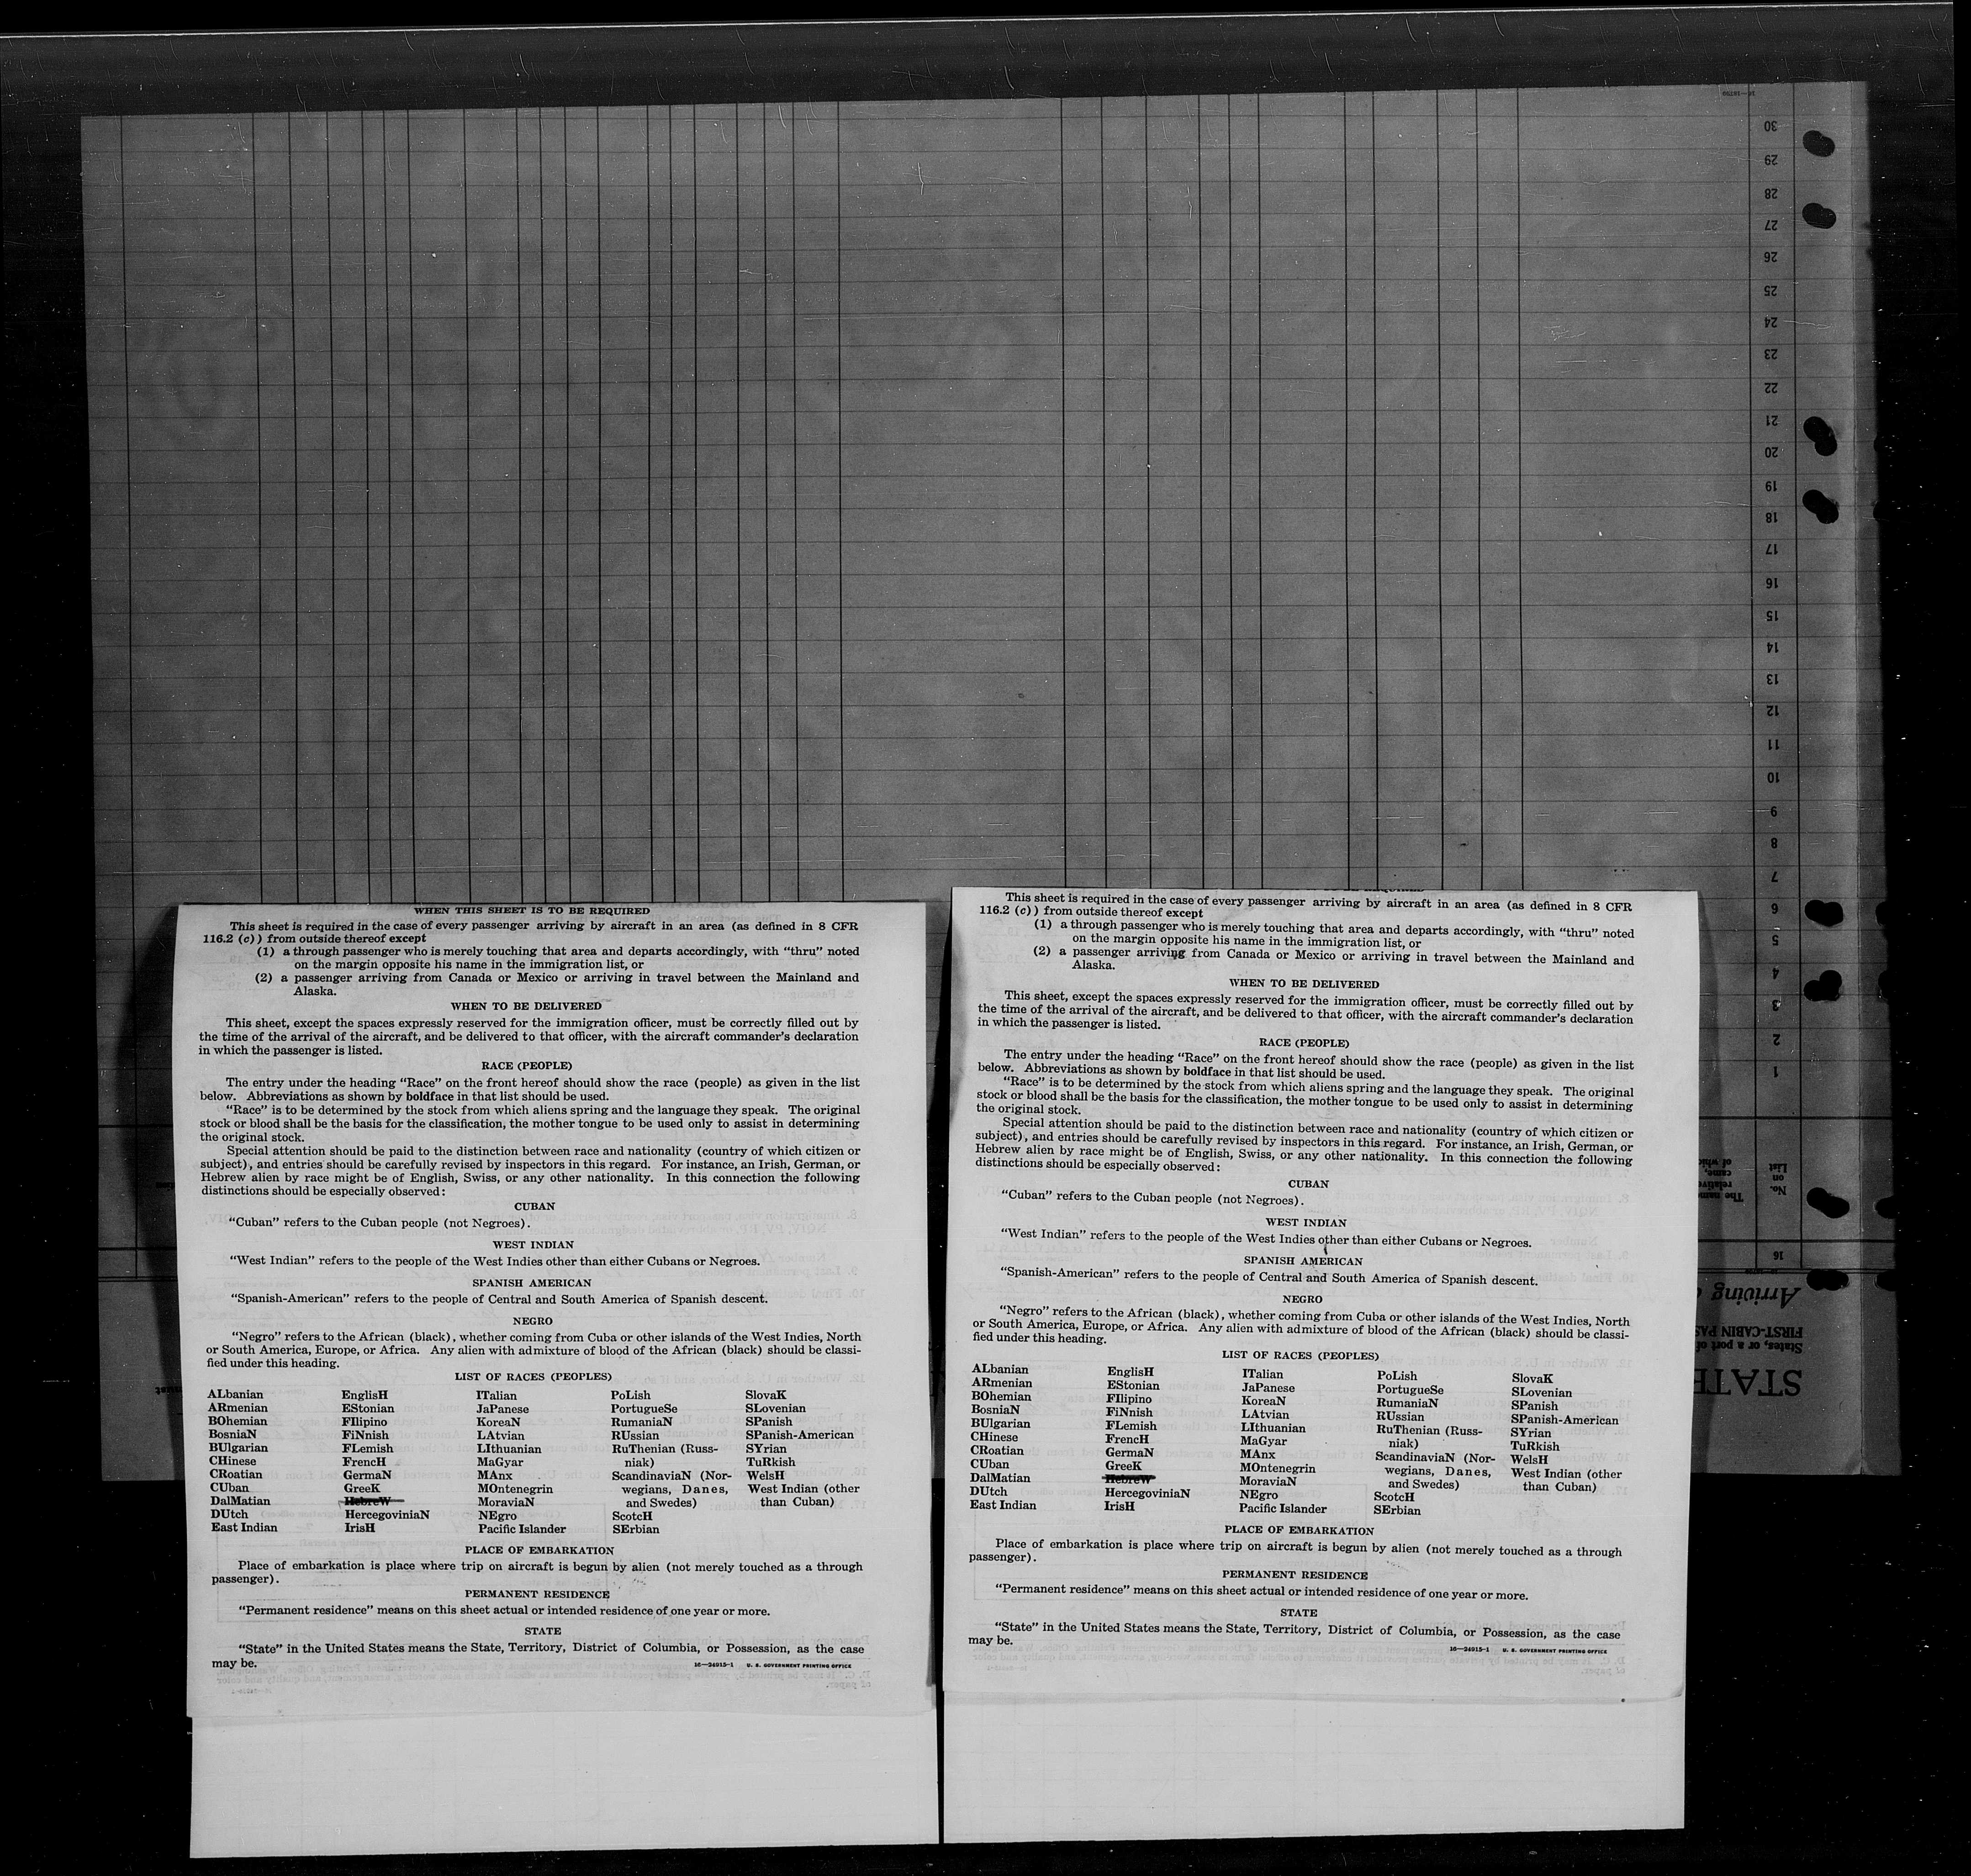 16—18759
30
29
28
27
26
25
24
23
22
21
20
19
18
17
16
15
14
13
12
11
10
9
8
7
6
5
4
3
2
1
No.
on
List
16
Arriving
FIRST-CABIN PAS
States, or a port of
STATE
WHEN THIS SHEET IS TO BE REQUIRED
This sheet is required in the case of every passenger arriving by aircraft in an area (as defined in 8 CFR
116.2 (c)) from outside thereof except
(1) a through passenger who is merely touching that area and departs accordingly, with “thru” noted
on the margin opposite his name in the immigration list, or
(2) a passenger arriving from Canada or Mexico or arriving in travel between the Mainland and
Alaska.
WHEN TO BE DELIVERED
This sheet, except the spaces expressly reserved for the immigration officer, must be correctly filled out by
the time of the arrival of the aircraft, and be delivered to that officer, with the aircraft commander’s declaration
in which the passenger is listed.
RACE (PEOPLE)
The entry under the heading “Race” on the front hereof should show the race (people) as given in the list
below. Abbreviations as shown by boldface in that list should be used.
“Race” is to be determined by the stock from which aliens spring and the language they speak. The original
stock or blood shall be the basis for the classification, the mother tongue to be used only to assist in determining
the original stock.
Special attention should be paid to the distinction between race and nationality (country of which citizen or
subject), and entries should be carefully revised by inspectors in this regard. For instance, an Irish, German, or
Hebrew alien by race might be of English, Swiss, or any other nationality. In this connection the following
distinctions should be especially observed:
CUBAN
“Cuban” refers to the Cuban people (not Negroes).
WEST INDIAN
“West Indian” refers to the people of the West Indies other than either Cubans or Negroes.
SPANISH AMERICAN
“Spanish-American” refers to the people of Central and South America of Spanish descent.
NEGRO
“Negro” refers to the African (black), whether coming from Cuba or other islands of the West Indies, North
or South America, Europe, or Africa. Any alien with admixture of blood of the African (black) should be classi-
fied under this heading.
LIST OF RACES (PEOPLES)
ALbanian
ARmenian
BOhemian
BosniaN
BUlgarian
CHinese
CRoatian
CUban
DalMatian
DUtch
East Indian
EnglisH
EStonian
FIlipino
FiNnish
FLemish
FrencH
GermaN
GreeK
HebreW
HercegoviniaN
IrisH
ITalian
JaPanese
KoreaN
LAtvian
LIthuanian
MaGyar
MAnx
MOntenegrin
MoraviaN
NEgro
Pacific Islander
PoLish
PortugueSe
RumaniaN
RUssian
RuThenian (Russ-
niak)
ScandinaviaN (Nor-
wegians, Danes,
and Swedes)
ScotcH
SErbian
SlovaK
SLovenian
SPanish
SPanish-American
SYrian
TuRkish
WelsH
West Indian (other
than Cuban)
PLACE OF EMBARKATION
Place of embarkation is place where trip on aircraft is begun by alien (not merely touched as a through
passenger).
PERMANENT RESIDENCE
“Permanent residence” means on this sheet actual or intended residence of one year or more.
STATE
“State” in the United States means the State, Territory, District of Columbia, or Possession, as the case
may be.
16—24915-1 U. S. GOVERNMENT PRINTING OFFICE
This sheet is required in the case of every passenger arriving by aircraft in an area (as defined in 8 CFR
116.2 (c)) from outside thereof except
(1) a through passenger who is merely touching that area and departs accordingly, with “thru” noted
on the margin opposite his name in the immigration list, or
(2) a passenger arriving from Canada or Mexico or arriving in travel between the Mainland and
Alaska.
WHEN TO BE DELIVERED
This sheet, except the spaces expressly reserved for the immigration officer, must be correctly filled out by
the time of the arrival of the aircraft, and be delivered to that officer, with the aircraft commander’s declaration
in which the passenger is listed.
RACE (PEOPLE)
The entry under the heading “Race” on the front hereof should show the race (people) as given in the list
below. Abbreviations as shown by boldface in that list should be used.
“Race” is to be determined by the stock from which aliens spring and the language they speak. The original
stock or blood shall be the basis for the classification, the mother tongue to be used only to assist in determining
the original stock.
Special attention should be paid to the distinction between race and nationality (country of which citizen or
subject), and entries should be carefully revised by inspectors in this regard. For instance, an Irish, German, or
Hebrew alien by race might be of English, Swiss, or any other nationality. In this connection the following
distinctions should be especially observed:
CUBAN
“Cuban” refers to the Cuban people (not Negroes).
WEST INDIAN
“West Indian” refers to the people of the West Indies other than either Cubans or Negroes.
SPANISH AMERICAN
“Spanish-American” refers to the people of Central and South America of Spanish descent.
NEGRO
“Negro” refers to the African (black), whether coming from Cuba or other islands of the West Indies, North
or South America, Europe, or Africa. Any alien with admixture of blood of the African (black) should be classi-
fied under this heading.
LIST OF RACES (PEOPLES)
ALbanian
ARmenian
BOhemian
BosniaN
BUlgarian
CHinese
CRoatian
CUban
DalMatian
DUtch
East Indian
EnglisH
EStonian
FIlipino
FiNnish
FLemish
FrencH
GermaN
GreeK
HebreW
HercegoviniaN
IrisH
ITalian
JaPanese
KoreaN
LAtvian
LIthuanian
MaGyar
MAnx
MOntenegrin
MoraviaN
NEgro
Pacific Islander
PoLish
PortugueSe
RumaniaN
RUssian
RuThenian (Russ-
niak)
ScandinaviaN (Nor-
wegians, Danes,
and Swedes)
ScotcH
SErbian
SlovaK
SLovenian
SPanish
SPanish-American
SYrian
TuRkish
WelsH
West Indian (other
than Cuban)
PLACE OF EMBARKATION
Place of embarkation is place where trip on aircraft is begun by alien (not merely touched as a through
passenger).
PERMANENT RESIDENCE
“Permanent residence” means on this sheet actual or intended residence of one year or more.
STATE
“State” in the United States means the State, Territory, District of Columbia, or Possession, as the case
may be.
16—24915-1 U. S. GOVERNMENT PRINTING OFFICE